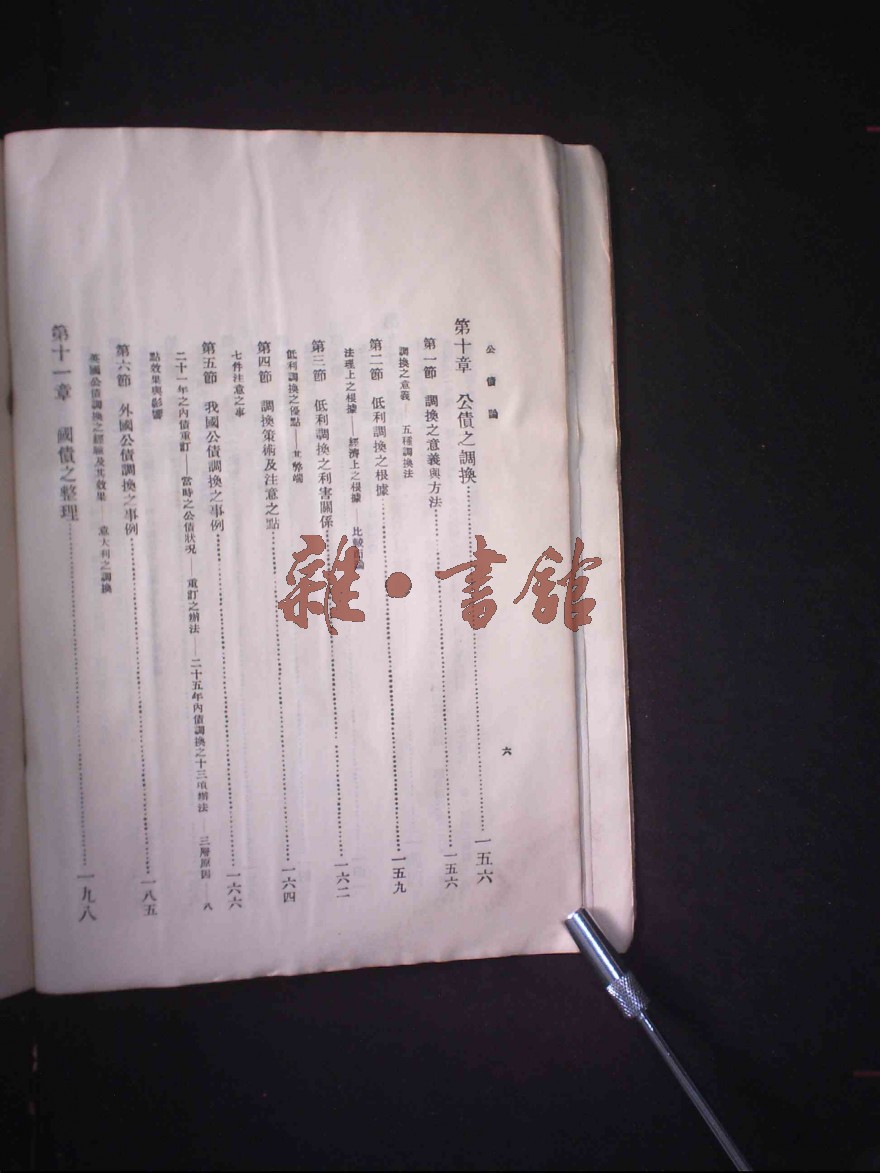 公債論
六
第十章 公債之調換……一五六
第一節 調換之意義與方法……一五六
調換之意義——五種調換法
第二節 低利調換之根據……一五九
法理上之根據——經濟上之根據 比較
第三節 低利調換之利害關係……一六二
低利調換之優點——其弊端
第四節 調換策術及注意之點……一六四
七件注意之事
第五節 我國公債調換之事例……一六六
二十一年之內債重訂——當時之公債狀況——重訂之辦法——二十五年內債調換之十三項辦法 三層原因——八
點效果與影響
第六節 外國公債調換之事例……一八五
英國公債調換之經驗及其效果——意大利之調換
第十一章 國債之整理……一九八
雜·書館